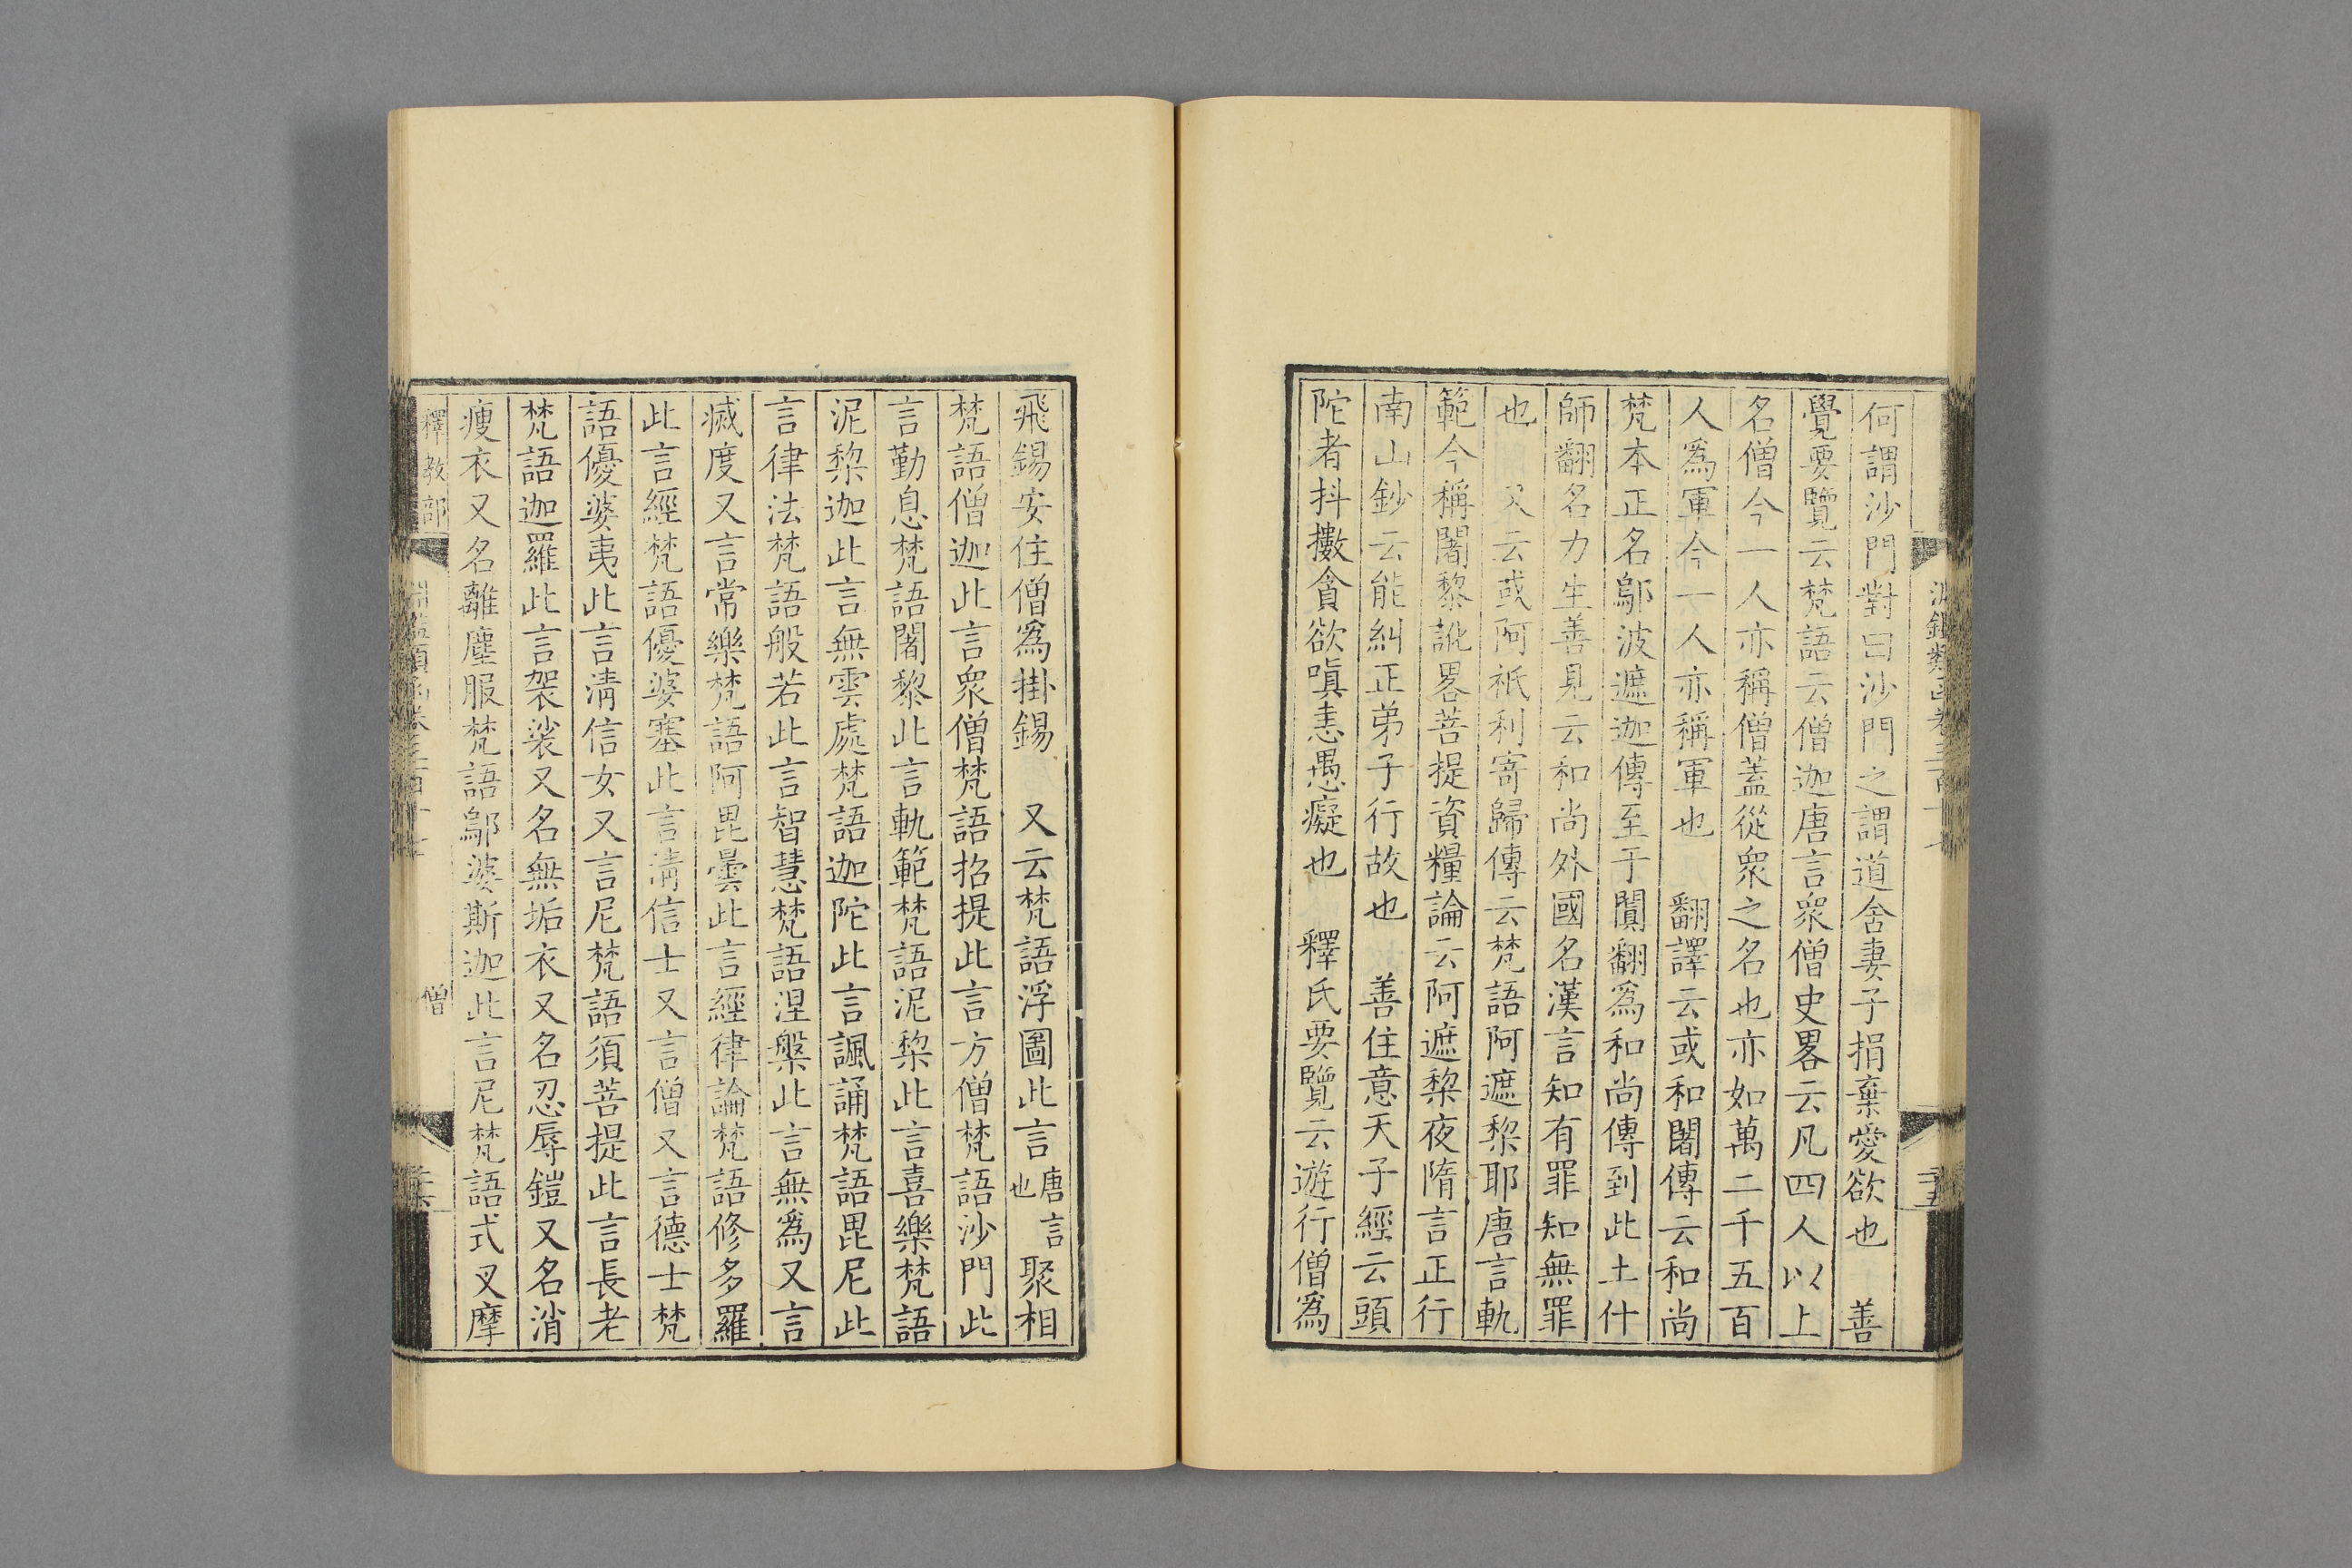 何謂沙門對曰沙門之謂道舍妻子捐棄愛欲也　善
覺要覽云梵語云僧迦唐言眾僧史畧云凡四人以上
名僧今一人亦稱僧蓋從眾之名也亦如萬二千五百
人爲軍今一人亦稱軍也　翻譯云或和闍傳云和尚
梵本正名鄔波遮迦傳至于闐翻爲和尚傳到此土什
師翻名力生善見云和尚外國名漢言知有罪知無罪
也　又云或阿祇利寄歸傳云梵語阿遮棃耶唐言軌
範今稱闍黎訛畧菩提資糧論云阿遮棃夜隋言正行
南山鈔云能糾正弟子行故也　善住意天子經云頭
陀者抖擻貪欲嗔恚愚癡也　釋氏要覽云遊行僧爲
飛錫安住僧爲掛錫　又云梵語浮圖此言唐言也聚相
梵語僧迦此言眾僧梵語招提此言方僧梵語沙門此
言勤息梵語闍黎此言軌範梵語泥棃此言喜樂梵語
泥棃迦此言無雲處梵語迦陀此言諷誦梵語毘尼此
言律法梵語般若此言智慧梵語涅槃此言無爲又言
滅度又言常樂梵語阿毘曇此言經律論梵語修多羅
此言經梵語優婆塞此言清信士又言僧又言德士梵
語優婆夷此言清信女又言尼梵語須菩提此言長老
梵語迦羅此言袈裟又名無垢衣又名忍辱鎧又名消
瘦衣又名離塵服梵語鄔婆斯迦此言尼梵語式叉摩
釋教部
僧